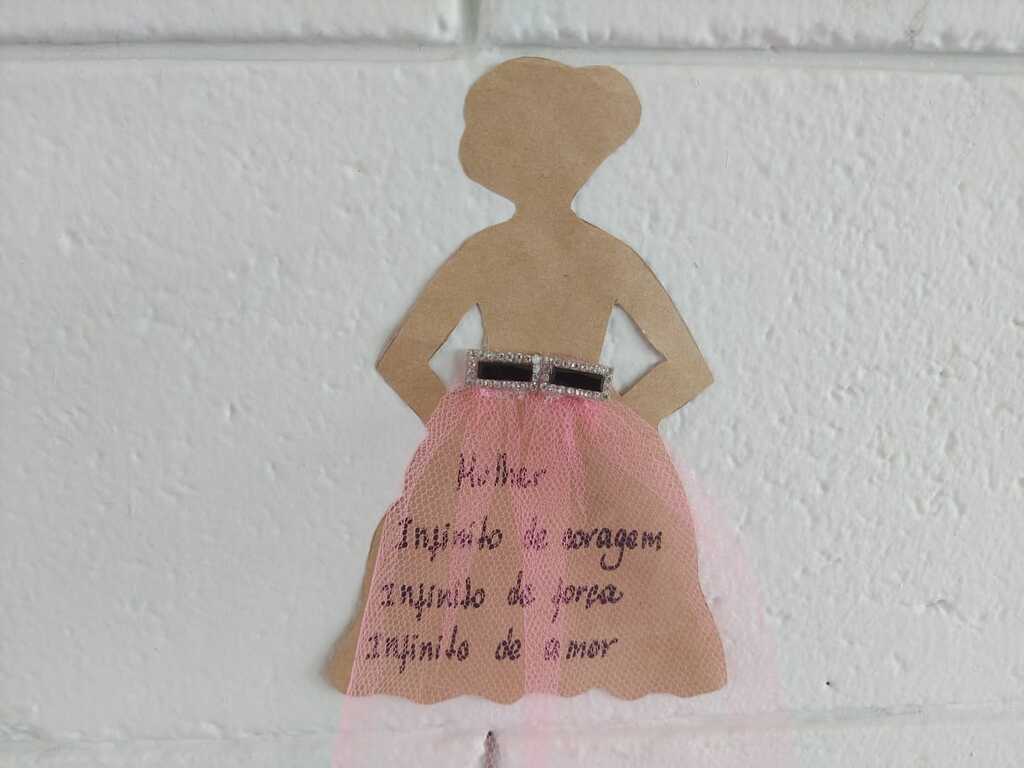 Mulher
Infinito de coragem
Infinito de força
Infinito de amor